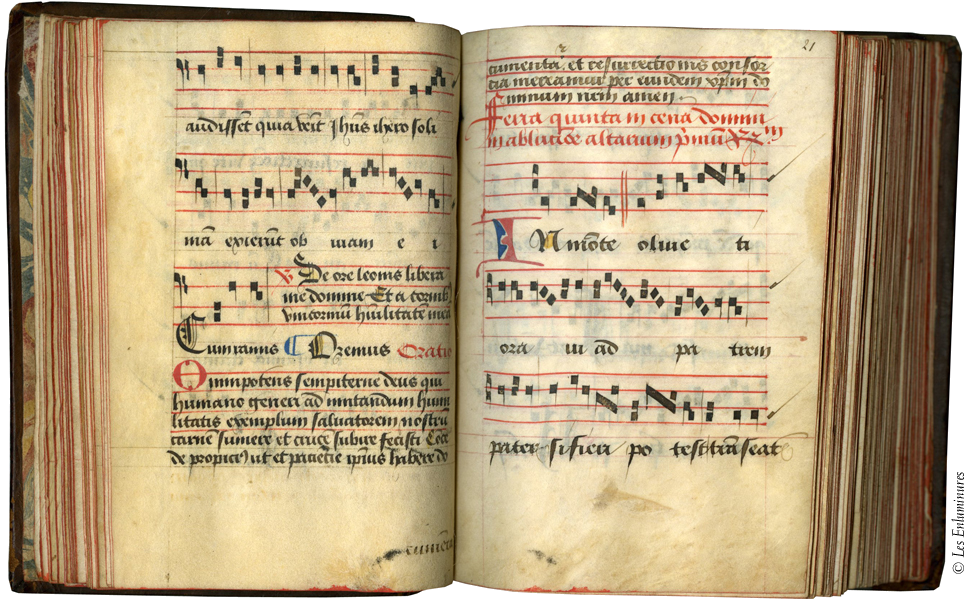 audissent quia venit Jhus ihero soli
mam exierunt ob uiam e i
℣ De ore leonis libera
me domine Et a cornib
vnicornuu huilitatem mea
Cum ramis Oremus Oratio
Omnipotens sempiterne deus qui
humano generi ad imitandum humi
litatis exemplum saluatorem nostru
carne sumere et cruce subire fecisti Coce
de propici ut et patietie ipius habere do
cumenta
21
cumenta et resurrectionis consor
cia mereamur per eundem xpm do
minum nrm amen
Feria quinta in cena domini
in ablucoe altarium pmu
IN monte oliue ti
ora ui ad pa trem
pater si fieri po test transeat
© Les Enluminures